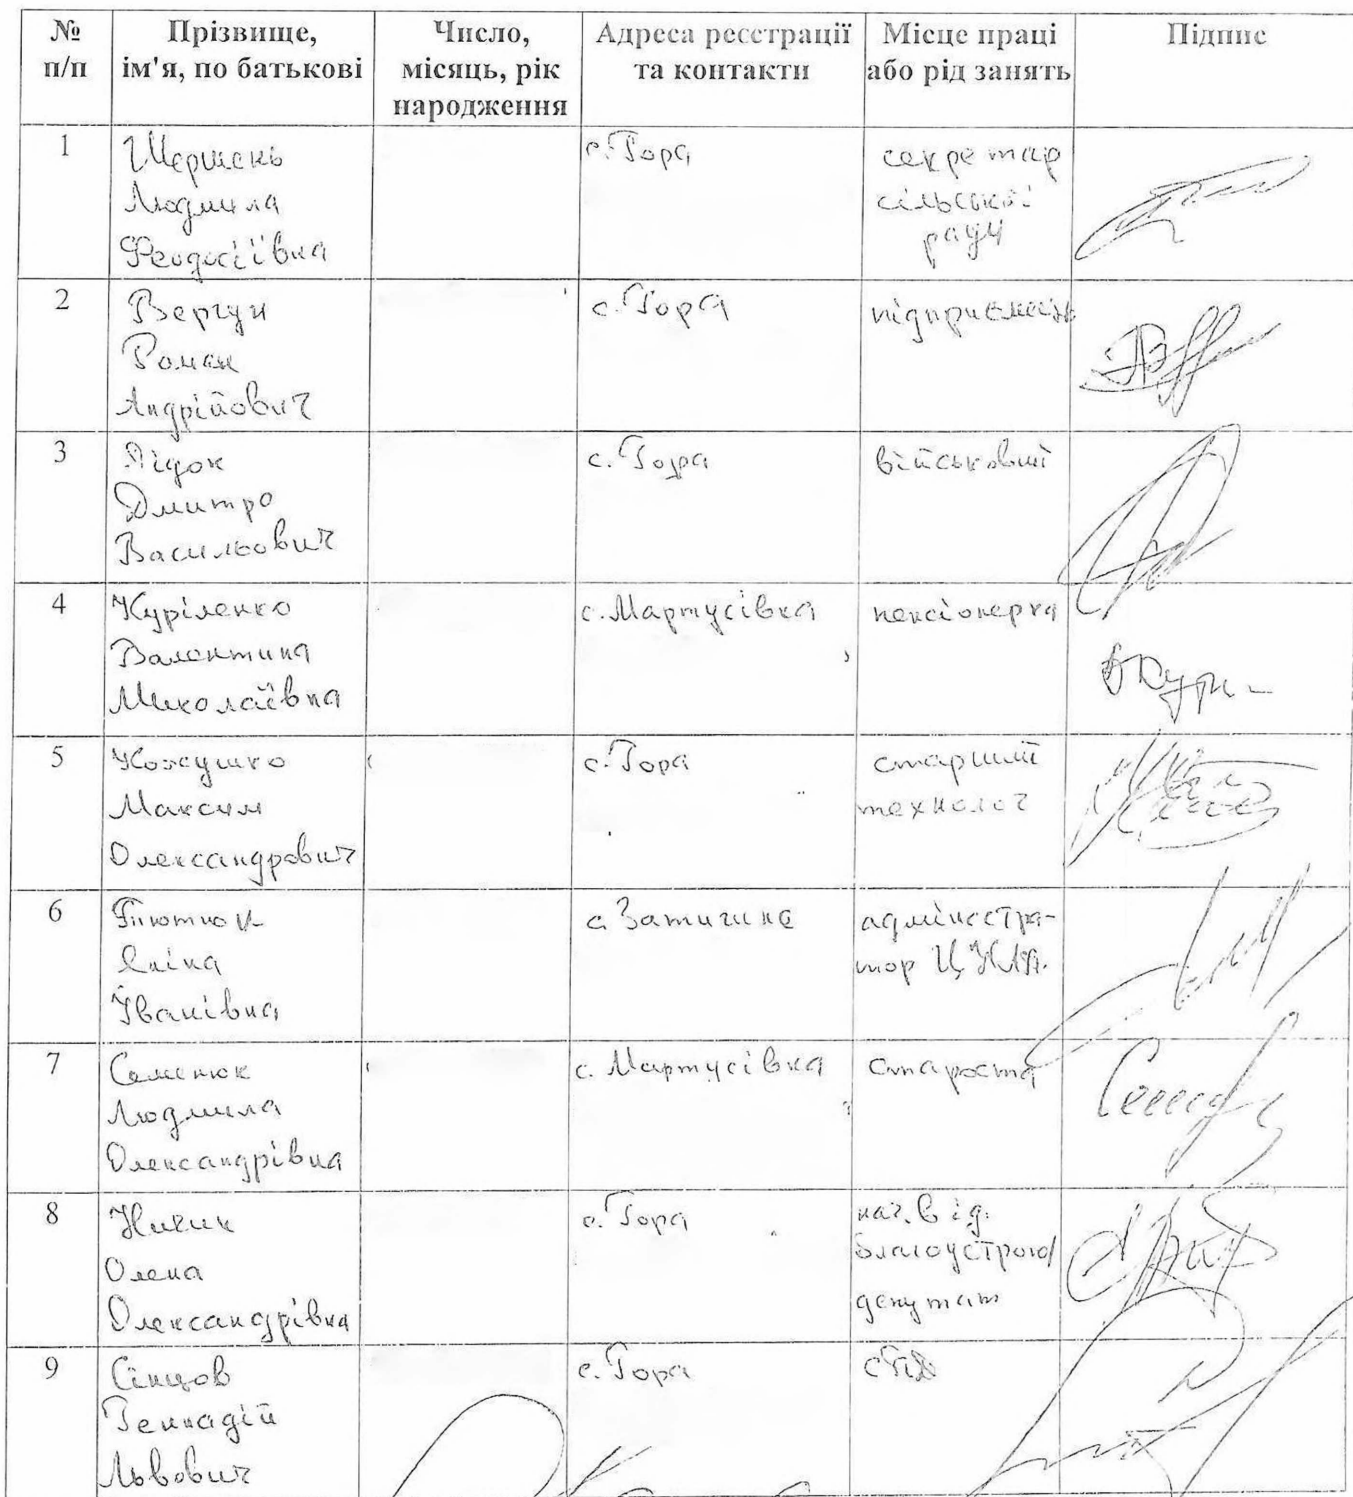 № п/п
Прізвище, ім'я, по батькові
Число, місяць, рік народження
Адреса реєстрації та контакти
Місце праці або рід занять
Підпис
1
Шершень
Людмила
Феодосіївна
с. Гора
секретар
сільської
ради
2
Вергун
Роман
Андрійович
с. Гора
підприємець
3
Лідок
Дмитро
Васильович
с. Гора
військовий
4
Куріленко
Валентина
Миколаївна
с. Мартусівка
пенсіонерка
5
Кожушко
Максим
Олександрович
с. Гора
старший
технолог
6
Аліна
Іванівна
с.
адміністра-
тор ЦНАП.
7
Семенюк
Людмила
Олександрівна
с. Мартусівка
староста
8
Олена
Олександрівна
с. Гора
нач. від.
благоустрою
депутат
9
Сінцов
Геннадій
Львович
с. Гора